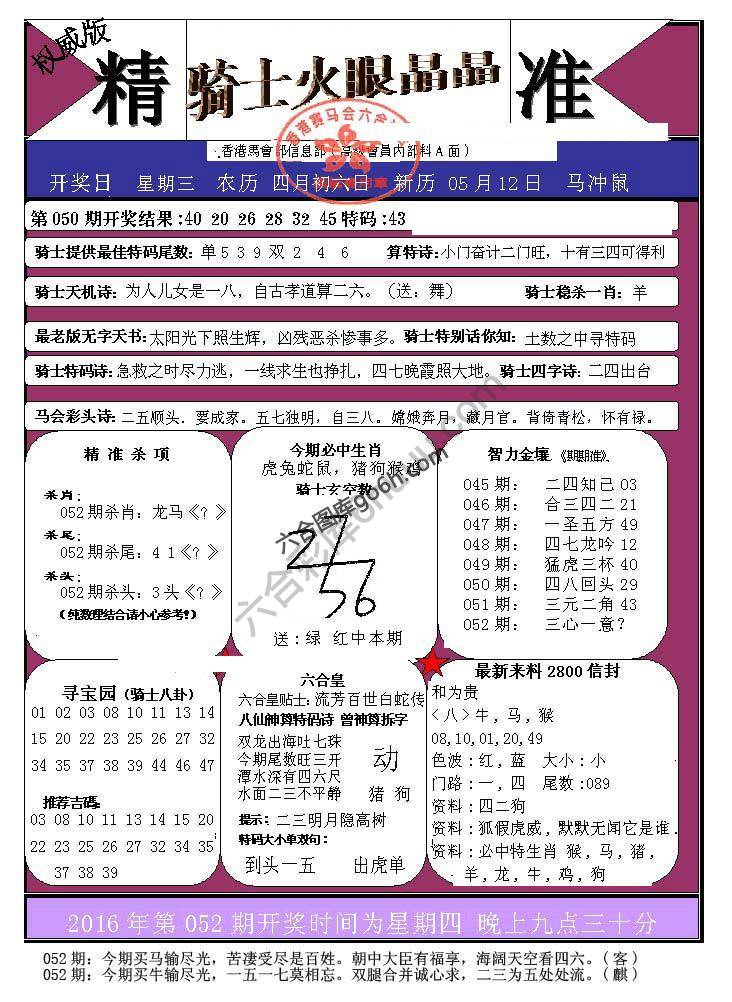 权威版
精 骑士火眼晶晶 准
香港馬會
信息部(高級會員内部料A面)
开奖日 星期三 农历 四月初六日 新历 05月12日 马冲鼠
第050期开奖结果:40 20 26 28 32 45特码:43
骑士提供最佳特码尾数: 单539双2 4 6 算特诗:小门奋计二门旺，十有三四可得利
骑士天机诗: 为人儿女是一八，自古孝道算二六。（送: 舞） 骑士稳杀一肖: 羊
最老版无字天书:太阳光下照生辉，凶残恶杀惨事多。骑士特别话你知: 土数之中寻特码
骑士特码诗: 急救之时尽力逃，一线求生也挣扎，四七晚霞照大地。骑士四字诗: 二四出台
马会彩头诗: 二五顺头．要成家。五七独明，自三八。嫦娥奔月，藏月官。背倚青松，怀有禄。
精 准 杀 项
杀肖:
052期杀肖: 龙马《? 》
杀尾:
052期杀尾: 4 1《? 》
杀头:
052期杀头: 3头《? 》
（纯数理结合请小心参考!）
今期必中生肖
虎兔蛇鼠，猪狗猴鸡
骑士玄空数
27
56
送: 绿 红中本期
智力金壤《期期准》
045期: 二四知己 03
046期: 合三四二 21
047期: 一圣五方 49
048期: 四七龙吟 12
049期: 猛虎三杯 40
050期: 四八回头 29
051期: 三元二角 43
052期: 三心一意?
寻宝园（骑士八卦）
01 02 03 08 10 11 13 14
15 20 22 23 25 26 27 32
34 35 37 38 39 44 46 47
推荐吉码:
03 08 10 11 13 14 15 20
22 23 25 26 27 32 34 35
37 38 39
六合皇
六合皇贴士: 流芳百世白蛇传
八仙神算特码诗 曾神算拆字
双龙出海吐七珠
今期尾数旺三开
潭水深有四六尺
水面二三不平静
动
猪 狗
提示: 二三明月隐高树
特码大小单双句:
到头一五 出虎单
最新来料2800信封
和为贵
〈八〉牛，马，猴
08,10,01,20,49
色波: 红，蓝 大小: 小
门路: 一，四 尾数:089
资料: 四二狗
资料: 狐假虎威，默默无闻它是谁．
资料: 必中特生肖 猴，马，猪，
羊，龙，牛，鸡，狗
2016年第052期开奖时间为星期四 晚上九点三十分
052期: 今期买马输尽光，苦凄受尽是百姓。朝中大臣有福享，海阔天空看四六。(客)
052期: 今期买牛输尽光，一五一七莫相忘。双腿合并诚心求，二三为五处处流。(麒)